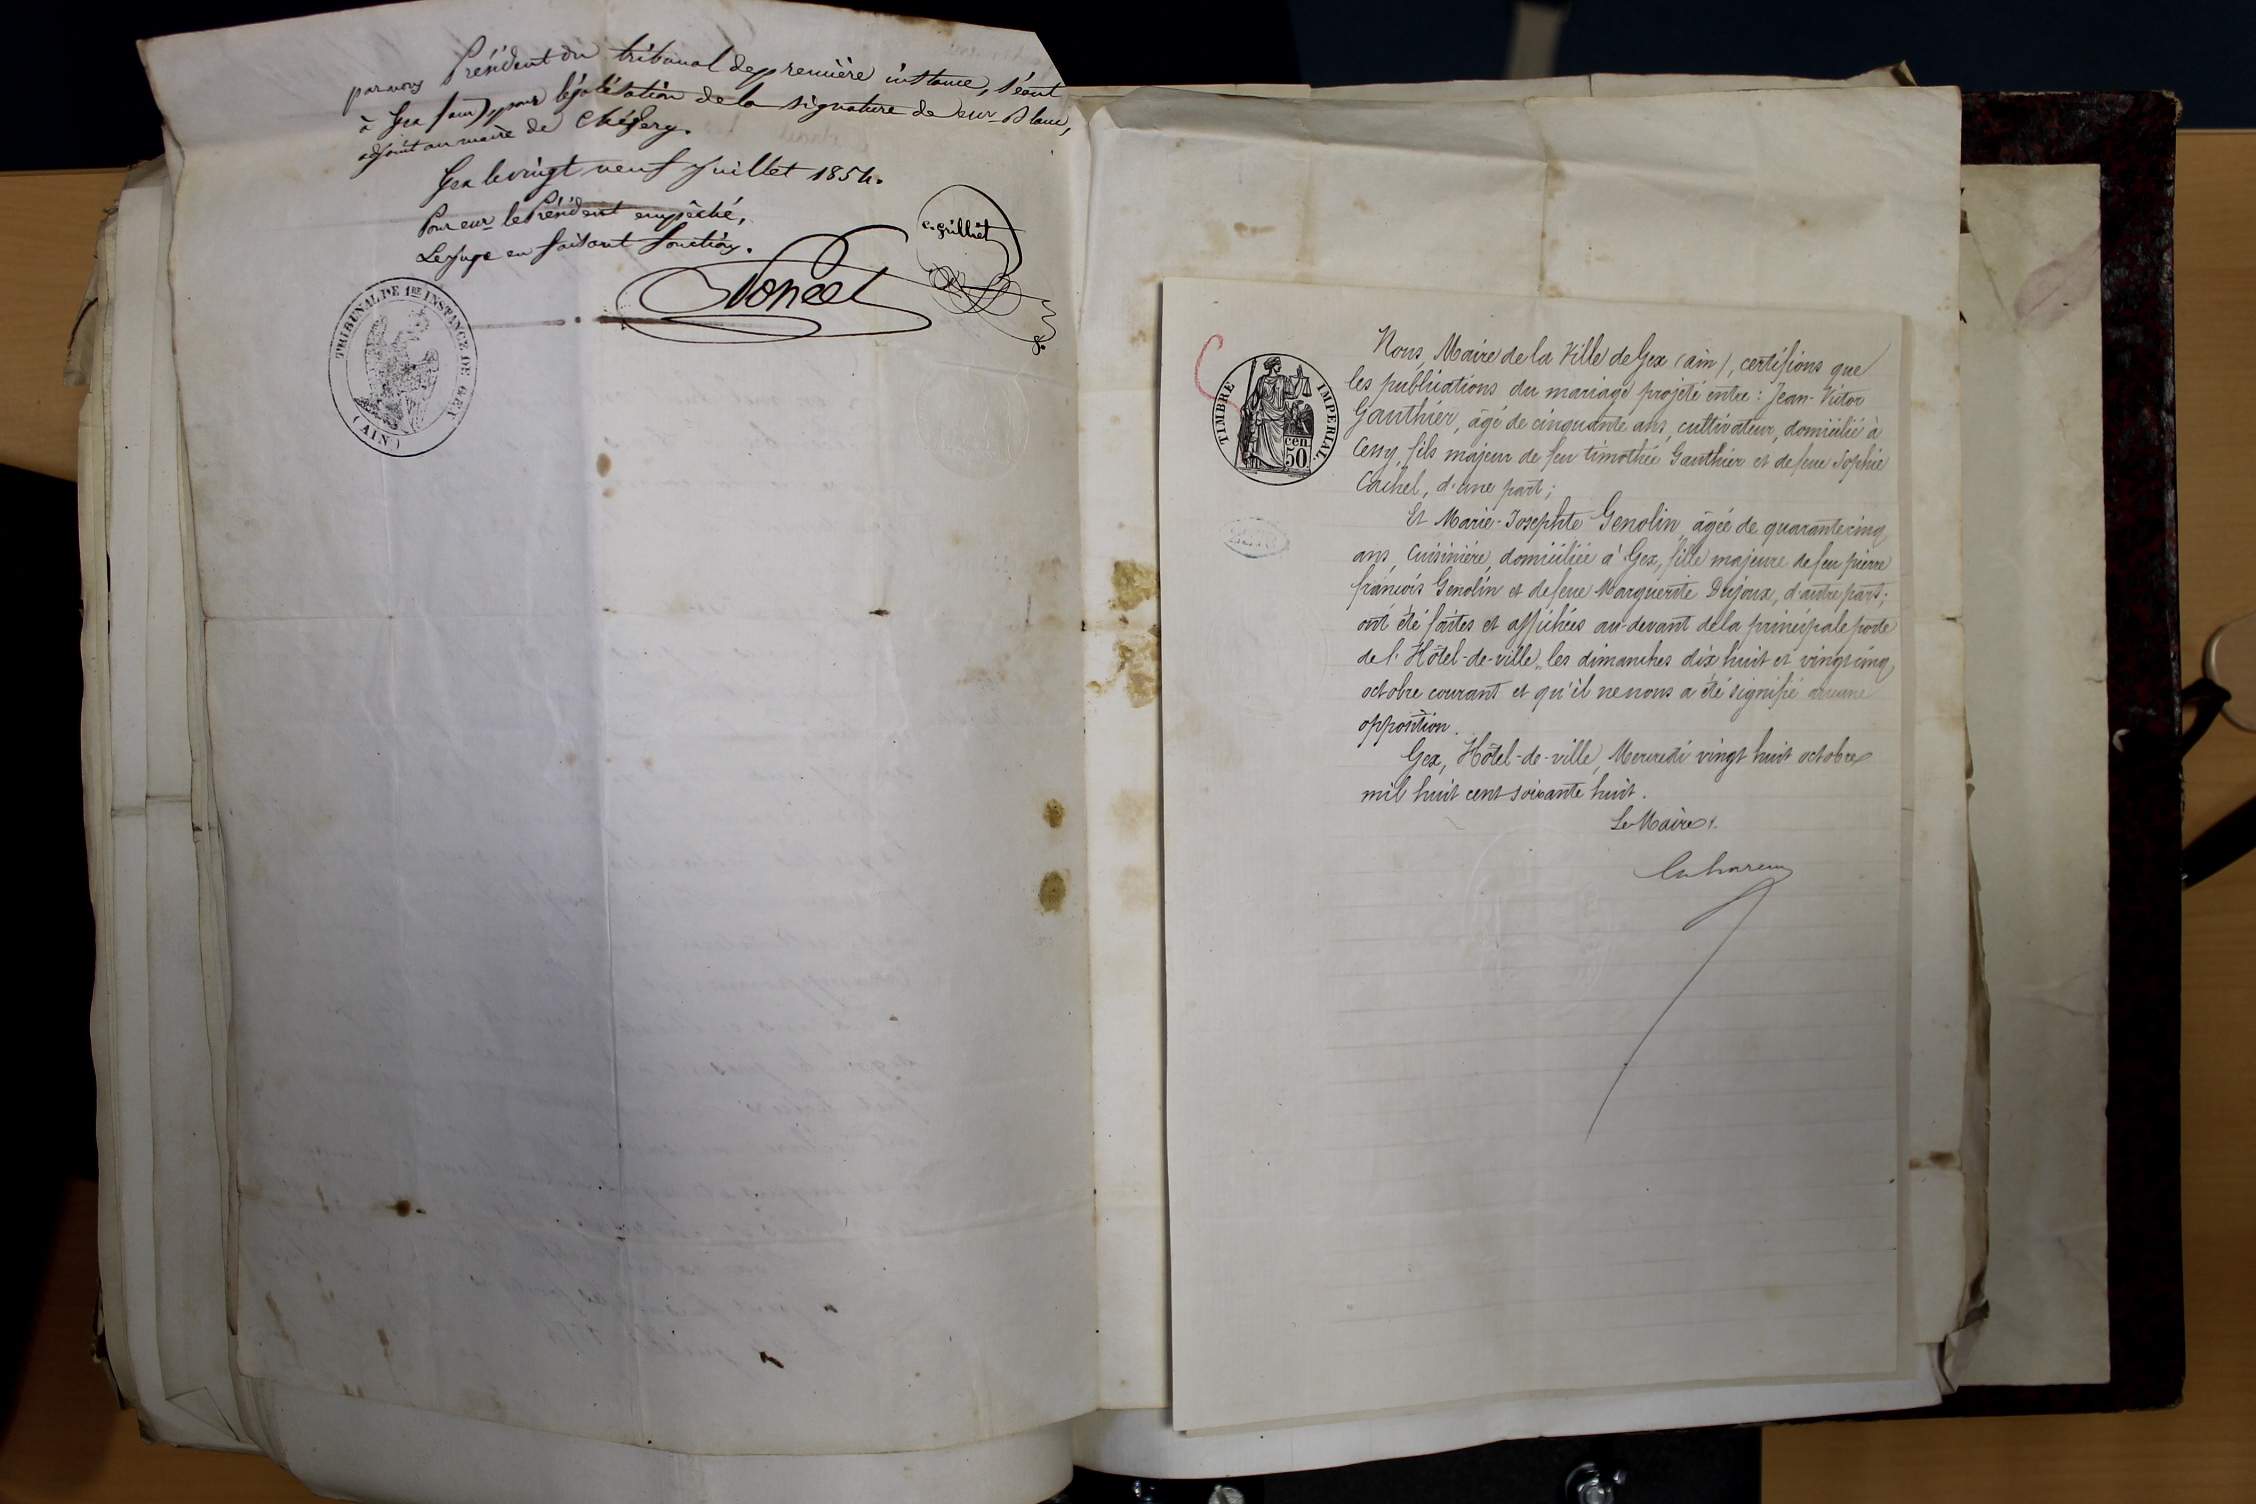 par nous Président du tribunal de première instance, séant
à Gex (ain) pour légalisation de la signature de eur Blanc,
adjoint au maire de Chézery.
Gex le vingt neuf Juillet 1854.
Pour eur le Président empêché,
Le Juge en faisant fonction.
C. Grilliet
Poncet
TRIBUNAL DE 1RE INSTANCE DE GEX
(AIN)
TIMBRE IMPERIAL
50 cen
Nous, Maire de la Ville de Gex (ain), certifions que
les publications du mariage projeté entre : Jean-Victor
Gauthier, âgé de cinquante ans, cultivateur, domicilié à
Cessy, fils majeur de feu timothée Gauthier et de feue Sophie
Cachel, d'une part ;
Et Marie-Josephte Genolin, âgée de quarante cinq
ans, Cuisinière, domiciliée à Gex, fille majeure de feu pierre
françois Genolin et de feue Marguerite Dujoux, d'autre part ;
ont été faites et affichées au-devant de la principale porte
de l'Hôtel-de-ville, les dimanches dix huit et vingt cinq
octobre courant et qu'il ne nous a été signifié aucune
opposition.
Gex, Hôtel-de-ville, Mercredi vingt huit octobre
mil huit cent soixante huit.
Le Maire